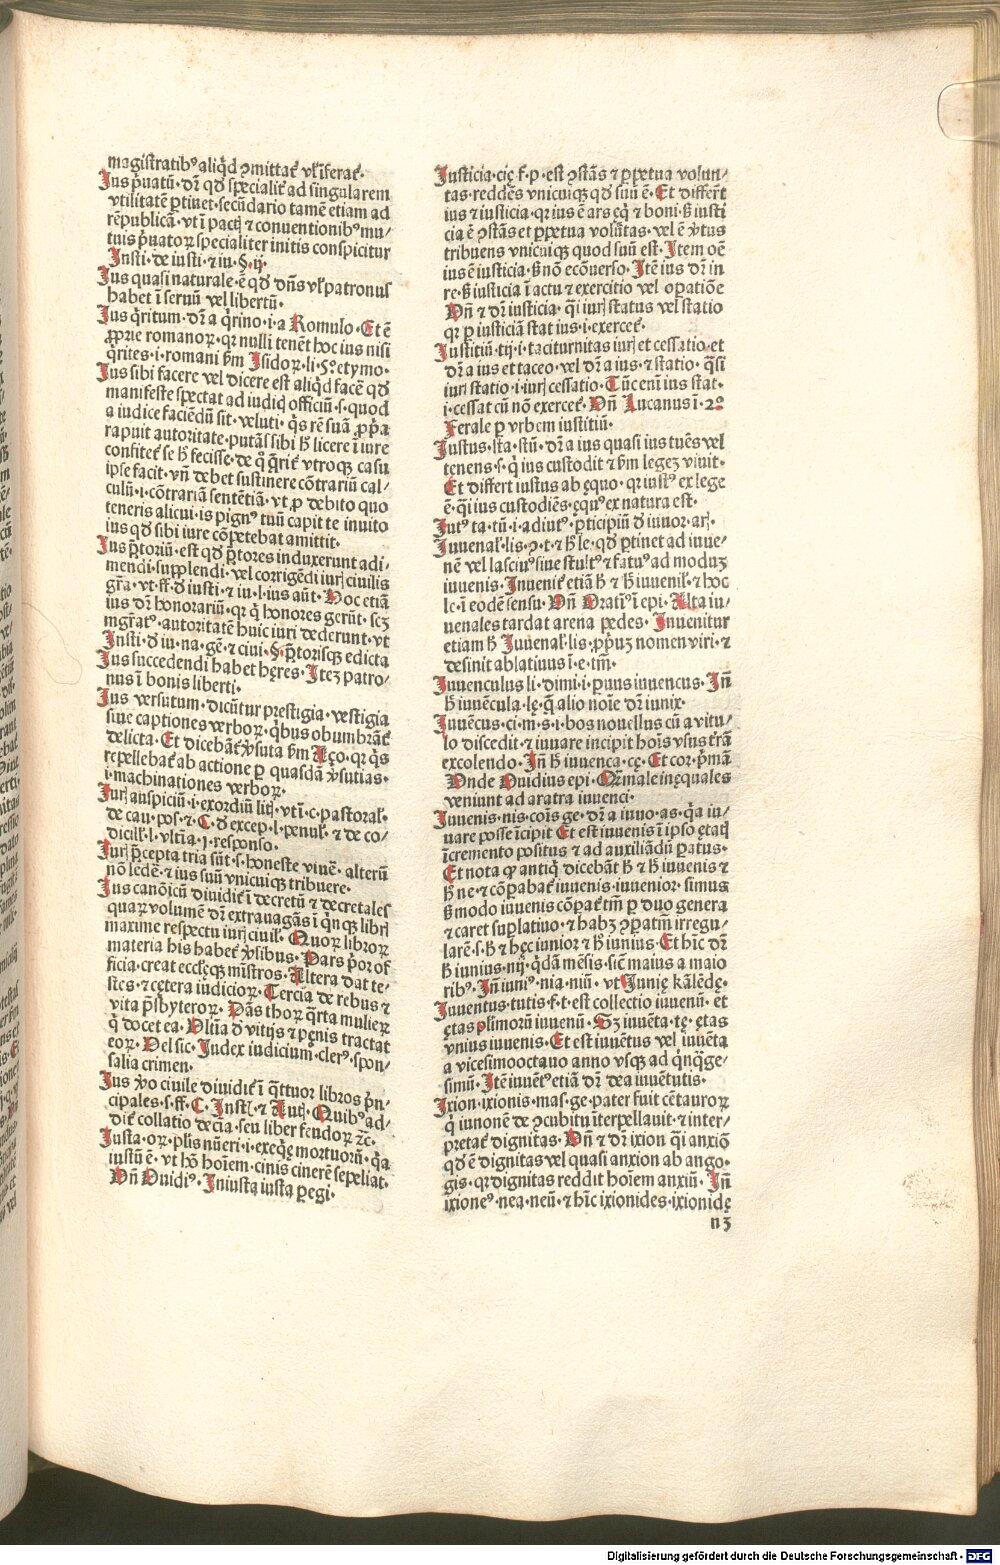 magistratibꝰ aliq̄d ꝯmittat̄ vl̓ īferat̄.
Ius p̄uatū. dr̄ qđ specialit̄ ad singularem
vtilitatē ꝑtinet. secūdario tamē etiam ad
rēpublicā. vt ī pactꝭ ⁊ conventionibꝰ mu⸗
tuis p̄uatoꝝ specialiter initis conspicitur
Insti. de iusti. ⁊ iu. §. ij.
Ius quasi naturale. ē qđ dn̄s vl̓ patronus
habet ī seruū vel libertū.
Ius q̄ritum. dr̄ a q̄rino. i. a Romulo. Et ē
ꝓprie romanoꝝ. qꝛ nulli tenēt hoc ius nisi
q̄rites. i. romani ẜm Isidoꝝ. li. 5ꝰ. etymo.
Ius sibi facere vel dicere est aliq̄d facē qđ
manifeste spectat ad iudicꝭ officiū. s. quod
a iudice faciēdū sit. veluti. q̄s rē suā ꝓpͥa
rapuit autoritate. putās sibi ħ licere ī iure
confitet̄ se ħ fecisse. de qͦ q̄rit̄ vtroqꝫ casu
ipse facit. vn̄ debet sustinere cōtrariū cal⸗
culū. i. cōtrariā sentētiā. vt ꝓ debito quo
teneris alicui. is pignꝰ tuū capit te inuito
ius qđ sibi iure cōpetebat amittit.
Ius p̄toriū. est qđ p̄tores induxerunt adi⸗
mendi. supplendi. vel corrigēdi iurꝭ ciuilis
gr̄a. vt. ff. đ iusti. ⁊ iu. l. ius aūt. Hoc etiā
ius dr̄ honorariū. qꝛ q̄ honores gerūt. scꝫ
mgr̄atꝰ. autoritatē huic iuri dederunt. vt
Insti. đ iu. na. gē. ⁊ ciui. §. p̄torisqꝫ edicta
Ius succedendi habet hęres. Iteꝫ patro⸗
nus ī bonis liberti.
Ius versutum. dicūtur prestigia. vestigia
siue captiones verboꝝ. q̄bus obumbrāt̄
delicta. Et dicebāt̄ v̓suta ẜm Aço. qꝛ q̄s
repellebāt ab actione ꝑ quasdā v̓sutias.
i. machinationes verboꝝ.
Iurꝭ auspiciū. i. exordiū litꝭ. vtī. c. pastoral̓.
de cau. pos. ⁊. C. đ excep. l. penul̓. ⁊ de co⸗
dicill̓. l. vltīa. §. responso.
Iurꝭ p̄cepta tria sūt. s. honeste viuē. alterū
nō ledē. ⁊ ius suū vnicuiqꝫ tribuere.
Ius canōicū diuidit̄ ī decretū ⁊ decretales
quaꝝ volumē dr̄ extrauagās ī q̄nqꝫ librꝭ
maxime respectu iurꝭ ciuil̓. Quoꝝ libroꝝ
materia his habet̄ v̓sibus. Pars pͥor of
ficia. creat eccłęqꝫ mīstros. Altera dat te⸗
stes. ⁊ cętera iudicioꝝ. Tercia de rebus ⁊
vita p̄sbyteroꝝ. Dās thoꝝ q̄rta mulieꝝ
q̄ docet ea. Vltīa đ vitijs ⁊ pęnis tractat
eoꝝ. Vel sic. Iudex iudicium. clerꝰ. spon⸗
salia crimen.
Ius v̓o civile diuidit̄ ī q̄ttuor libros p̄n⸗
cipales. s. ff. C. Instꝭ. ⁊ Autꝭ. Quibꝰ ad⸗
dit̄ collatio decīa. seu liber feudoꝝ ꝛc̄.
Iusta. oꝝ. plis nūeri. i. exeq̄ę mortuorū. q̄a
iustū ē. vt hō hoīem. cinis cinerē sepeliat.
Vn̄ Ouidiꝰ. Iniusta iusta ꝑegi.
Iusticia. cię. f. p. est ꝯstās ⁊ ꝑpetua volun⸗
tas. reddēs vnicuiqꝫ qđ suū ē. Et differt
ius ⁊ iusticia. qꝛ ius ē ars eq̄ ⁊ boni. ß iusti
cia ē ꝯstās et ꝑpetua volūtas. vel ē v̓tus
tribuens vnicuiqꝫ quod suū est. Item oē
ius ē iusticia. ß nō ecōuerso. Itē ius dr̄ in
re. ß iusticia ī actu ⁊ exercitio vel oꝑatiōe
Vn̄ ⁊ dr̄ iusticia. q̄i iurꝭ status vel statio
qꝛ ꝑ iusticiā stat ius. i. exercet̄.
Iustitiū. tij. i. taciturnitas iurꝭ et cessatio. et
dr̄ a ius et taceo. vel dr̄ a ius. ⁊ statio. q̄si
iurꝭ statio. i. iurꝭ cessatio. Tūc eni ius stat.
i. cessat cū nō exercet̄. Vn̄ Lucanus ī. 2ꝰ
Ferale ꝑ vrbem iustitiū.
Iustus. sta. stū. dr̄ a ius quasi ius tuēs vel
tenens. s. q̄ ius custodit ⁊ ẜm legeꝫ viuit.
Et differt iustus ab ęquo. qꝛ iustꝰ ex lege
ē. q̄i ius custodiēs. ęquꝰ ex natura est.
Iutꝰ ta. tū. i. adiutꝰ. ꝑticipiū đ iuuor. arꝭ.
Iuuenal̓. lis. ꝯ. t. ⁊ ħ le. qđ ꝑtinet ad iuue⸗
nē vel lasciuꝰ siue stultꝰ ⁊ fatuꝰ ad moduꝫ
iuuenis. Inuenit̄ etiā ħ ⁊ ħ iuuenil̓. ⁊ hoc
le. ī eodē sensu. Vn̄ Oratiꝰ ī epi. Alta iu⸗
uenales tardat arena pedes. Inuenitur
etiam ħ Iuuenal̓. lis. ꝓpͥuꝫ nomen viri. ⁊
desinit ablatiuus ī. e. tm̄.
Iuuenculus li. dimi. i. ꝑuus iuuencus. In̄
ħ iuuēcula. lę. q̄ alio noīe dr̄ iunix.
Iuuēcus. ci. m. s. i. bos nouellus cū a vitu⸗
lo discedit. ⁊ iuuare incipit hoīs vsus tr̄ā
excolendo. In̄ ħ iuuenca. cę. Et cor. pͥmā
Vnde Ouidius epi. Qͣꝫ male inęquales
veniunt ad aratra iuuenci.
Iuuenis. nis. coīs ge. dr̄ a iuuo. as. q̄a iu⸗
uare posse īcipit Et est iuuenis ī ipso ętatꝭ
īcremento positus ⁊ ad auxiliādū ꝑatus.
Et nota ꝙ antiq̄ dicebāt ħ ⁊ ħ iuuenis ⁊
ħ ne. ⁊ cōꝑabat̄ iuuenis. iuuenior. simus
ß modo iuuenis cōꝑat̄ tm̄ ꝑ duo genera
⁊ caret suꝑlatiuo. ⁊ habꝫ ꝯꝑatm̄ irregu⸗
larē. s. ħ ⁊ hęc iunior ⁊ ħ iunius. Et hīc dr̄
ħ iunius. nij. q̄dā mēsis. sic̄ maius a maio
ribꝰ. In̄ iuniꝰ. nia. niū. vt Iunię kālēdę.
Iuuentus. tutis. f. t. est collectio iuuenū. et
ętas plimorū iuuenū. Sꝫ iuuēta. tę. ętas
vnius iuuenis. Et est iuuētus vel iuuēta
a vicesimooctauo anno vsqꝫ ad q̄nq̄ge⸗
simū. Itē iuuētꝰ etiā dr̄ dea iuuētutis.
Ixion. ixionis. mas. ge. pater fuit cētauroꝝ
q̄ iunonē de ꝯcubitu īterpellauit. ⁊ inter⸗
pretat̄ dignitas. Vn̄ ⁊ dr̄ ixion q̄i anxiō
qđ ē dignitas vel quasi anxion ab ango.
gis. qꝛ dignitas reddit hoīem anxiū. In̄
ixioneꝰ. nea. neū. ⁊ hīc ixionides. ixionidę
n 3
Digitalisierung gefördert durch die Deutsche Forschungsgemeinschaft - DFG